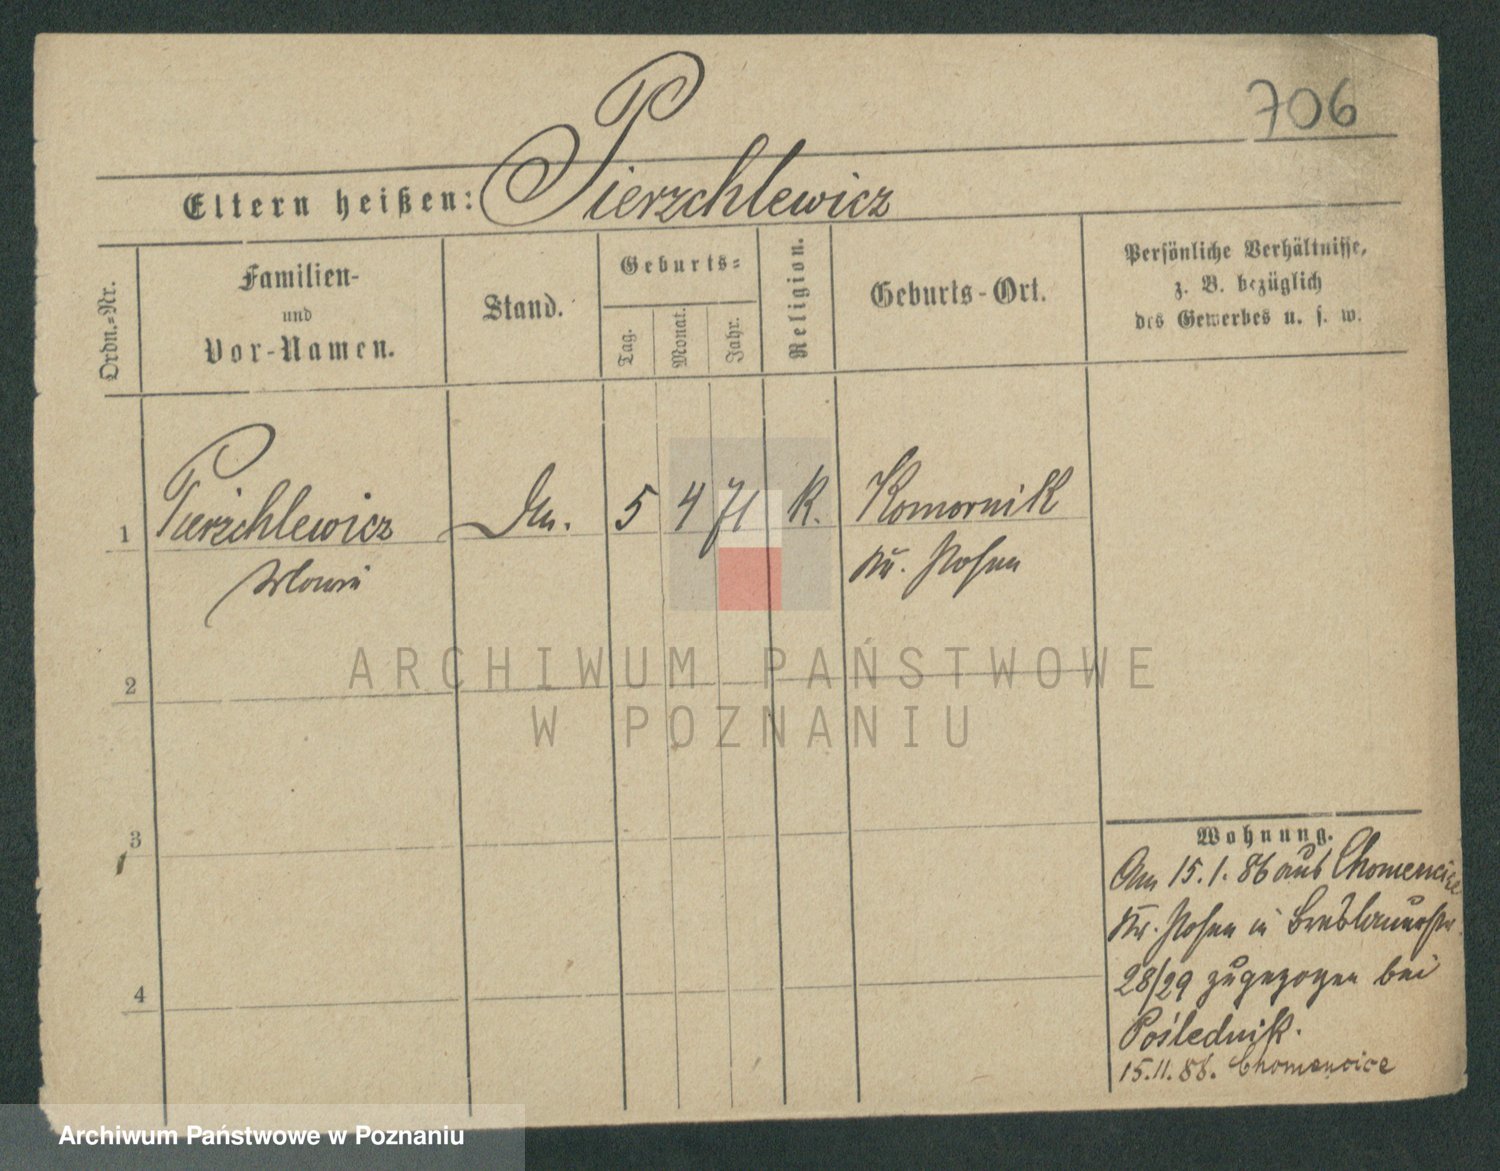 706
Eltern heißen: Pierzchlewicz
Ordn.-Nr.
Familien-
und
Vor-Namen.
Stand.
Geburts-
Tag.
Monat.
Jahr.
Religion.
Geburts-Ort.
Persönliche Verhältnisse,
z. B. bezüglich
des Gewerbes u. s. w.
1 Pierzchlewicz 5 4 71 K. Komornik
Kr. Posen
2
3
4
Wohnung.
Am 15.1.86 aus Chomencice
Kr. Posen in Breslauerstr.
28/29 zugezogen bei
Poślednik.
15.11.86. Chomencice
ARCHIWUM PAŃSTWOWE
W POZNANIU
Archiwum Państwowe w Poznaniu